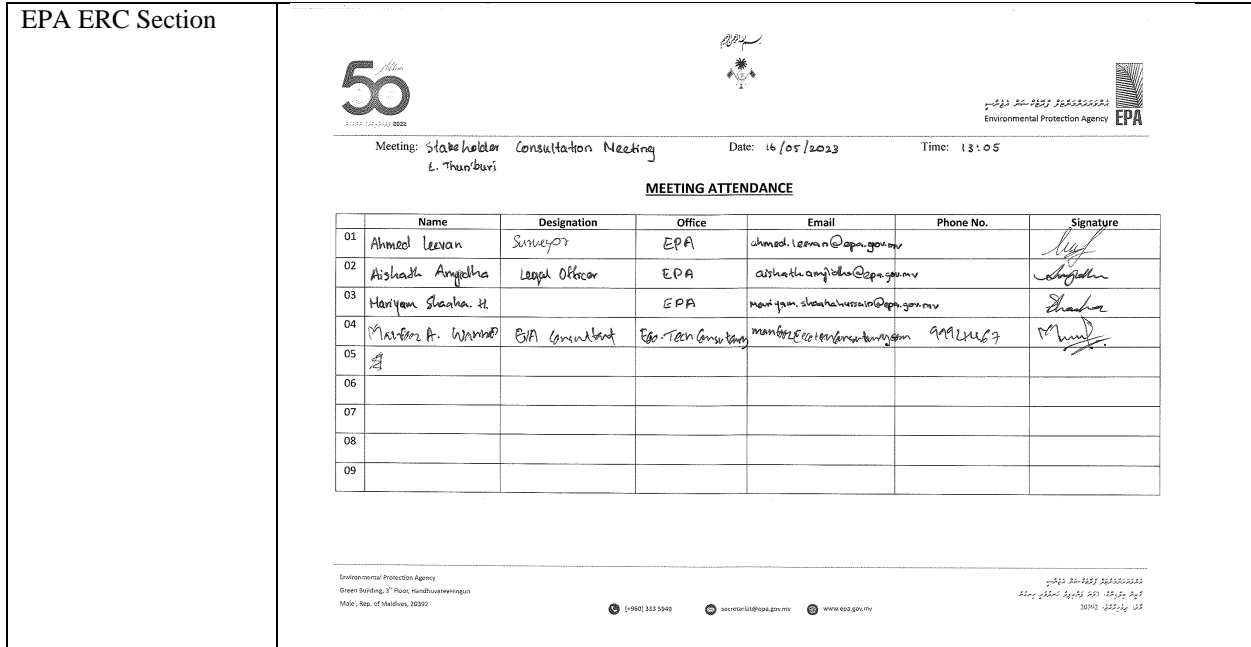 EPA ERC Section
50
2022
Environmental Protection Agency EPA
Meeting: Stakeholder Consultation Meeting Date: 16/05/2023 Time: 13:05
L. Thun'buri
MEETING ATTENDANCE
Name Designation Office Email Phone No. Signature
01 Ahmed Leevan Surveyor EPA ahmed.leevan@epa.gov.mv
02 Aishath Amjidha Legal Officer EPA aishath.amjidha@epa.gov.mv
03 Mariyam Shaaha. H. EPA mariyam.shaahahussain@epa.gov.mv
04 A. EIA Consultant Eco-Tech Consultancy
05
06
07
08
09
Environmental Protection Agency
Green Building, 3rd Floor, HandhuvareeHingun
Male', Rep. of Maldives, 20392
[+960] 333 5949 secretariat@epa.gov.mv www.epa.gov.mv